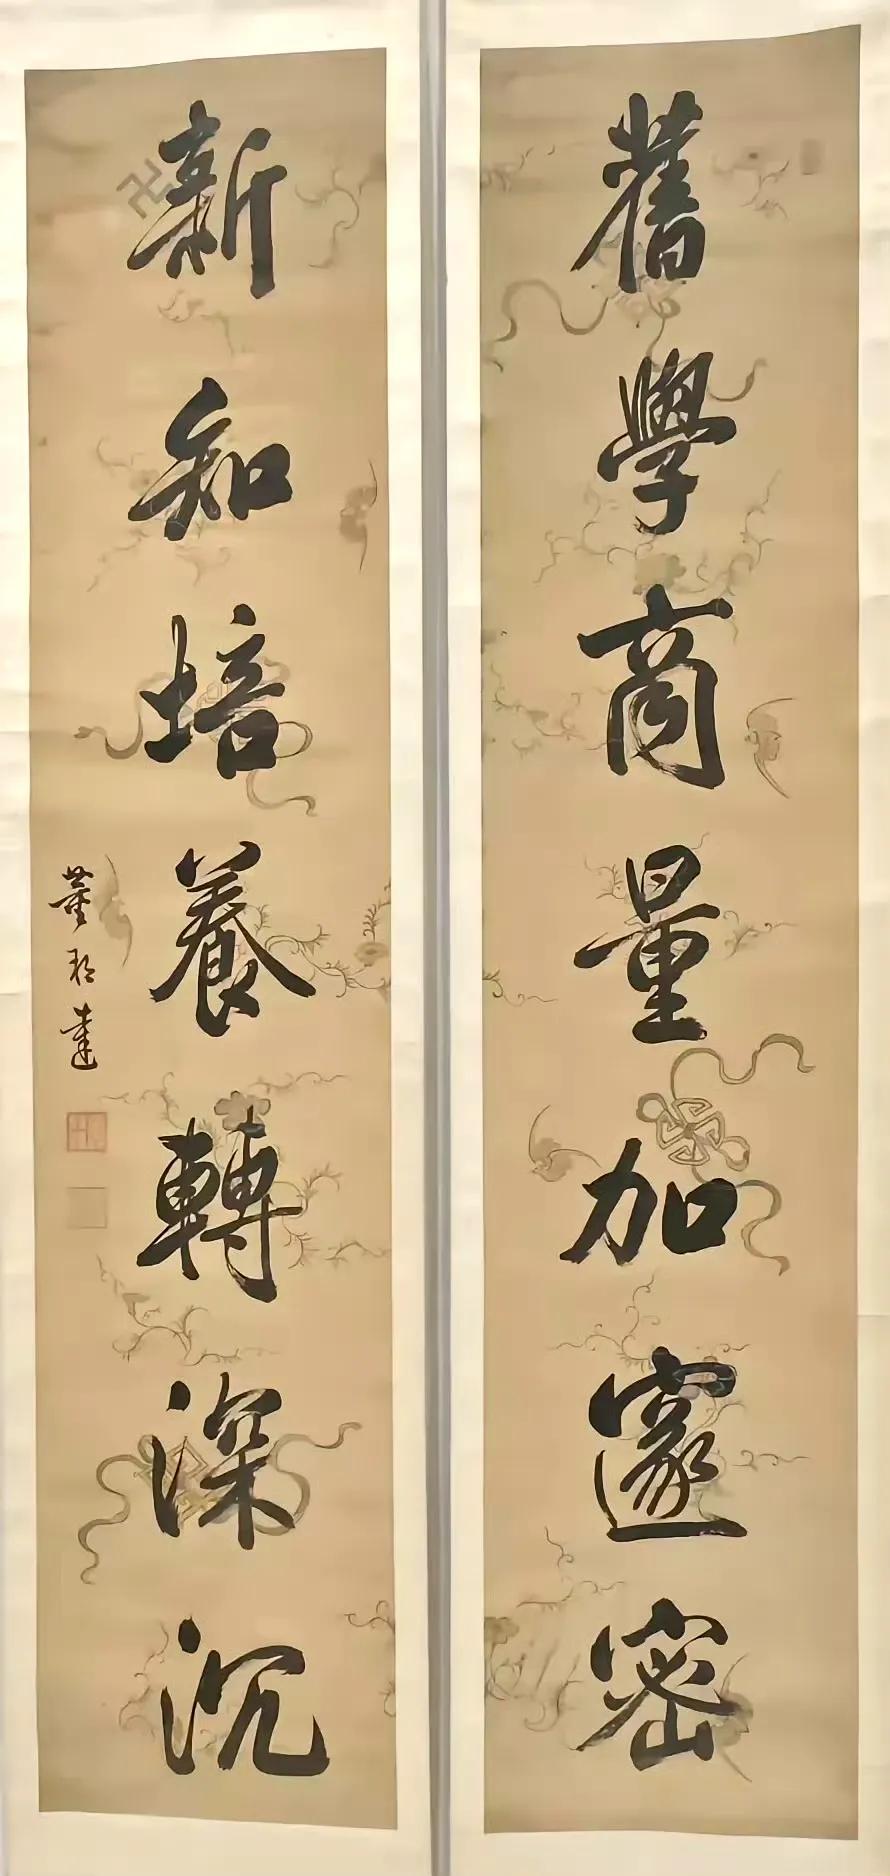 舊學商量加邃密
新知培養轉深沉
董邦達